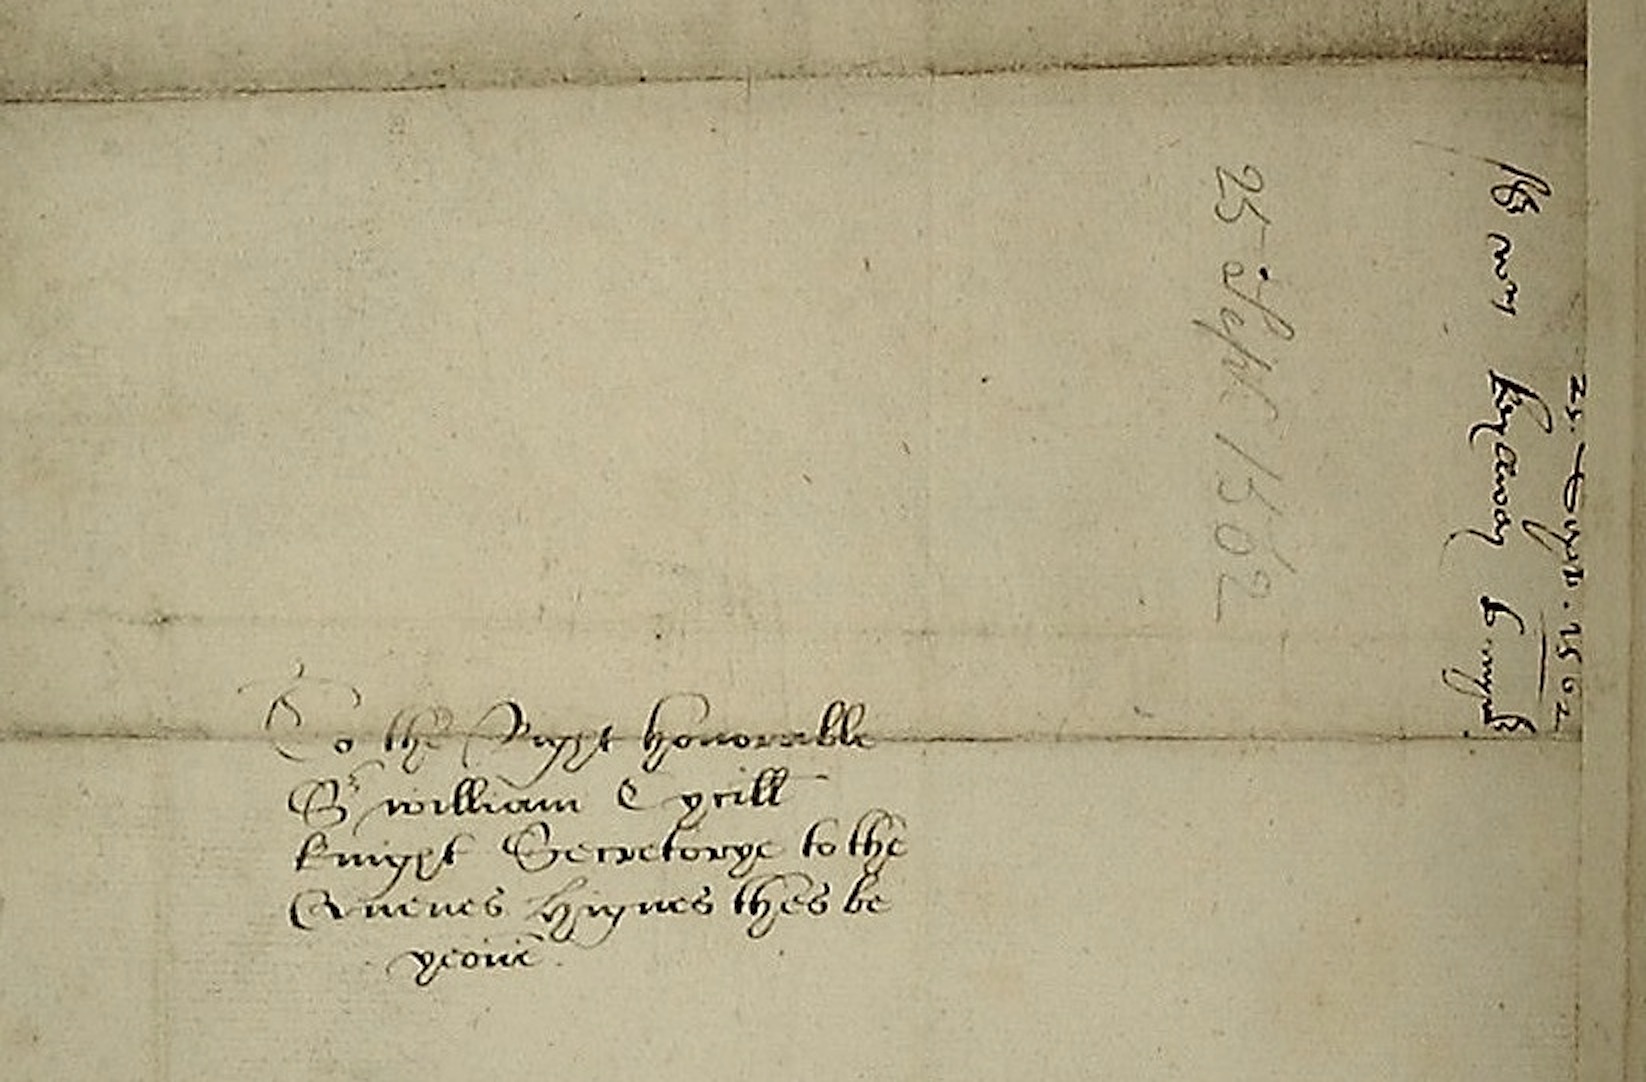 To the Right honorable
Sr william Cycill
knight Secretorye to the
Quenes Highnes thes be
yeove
25 Sept 1562
25. Septb. 1562